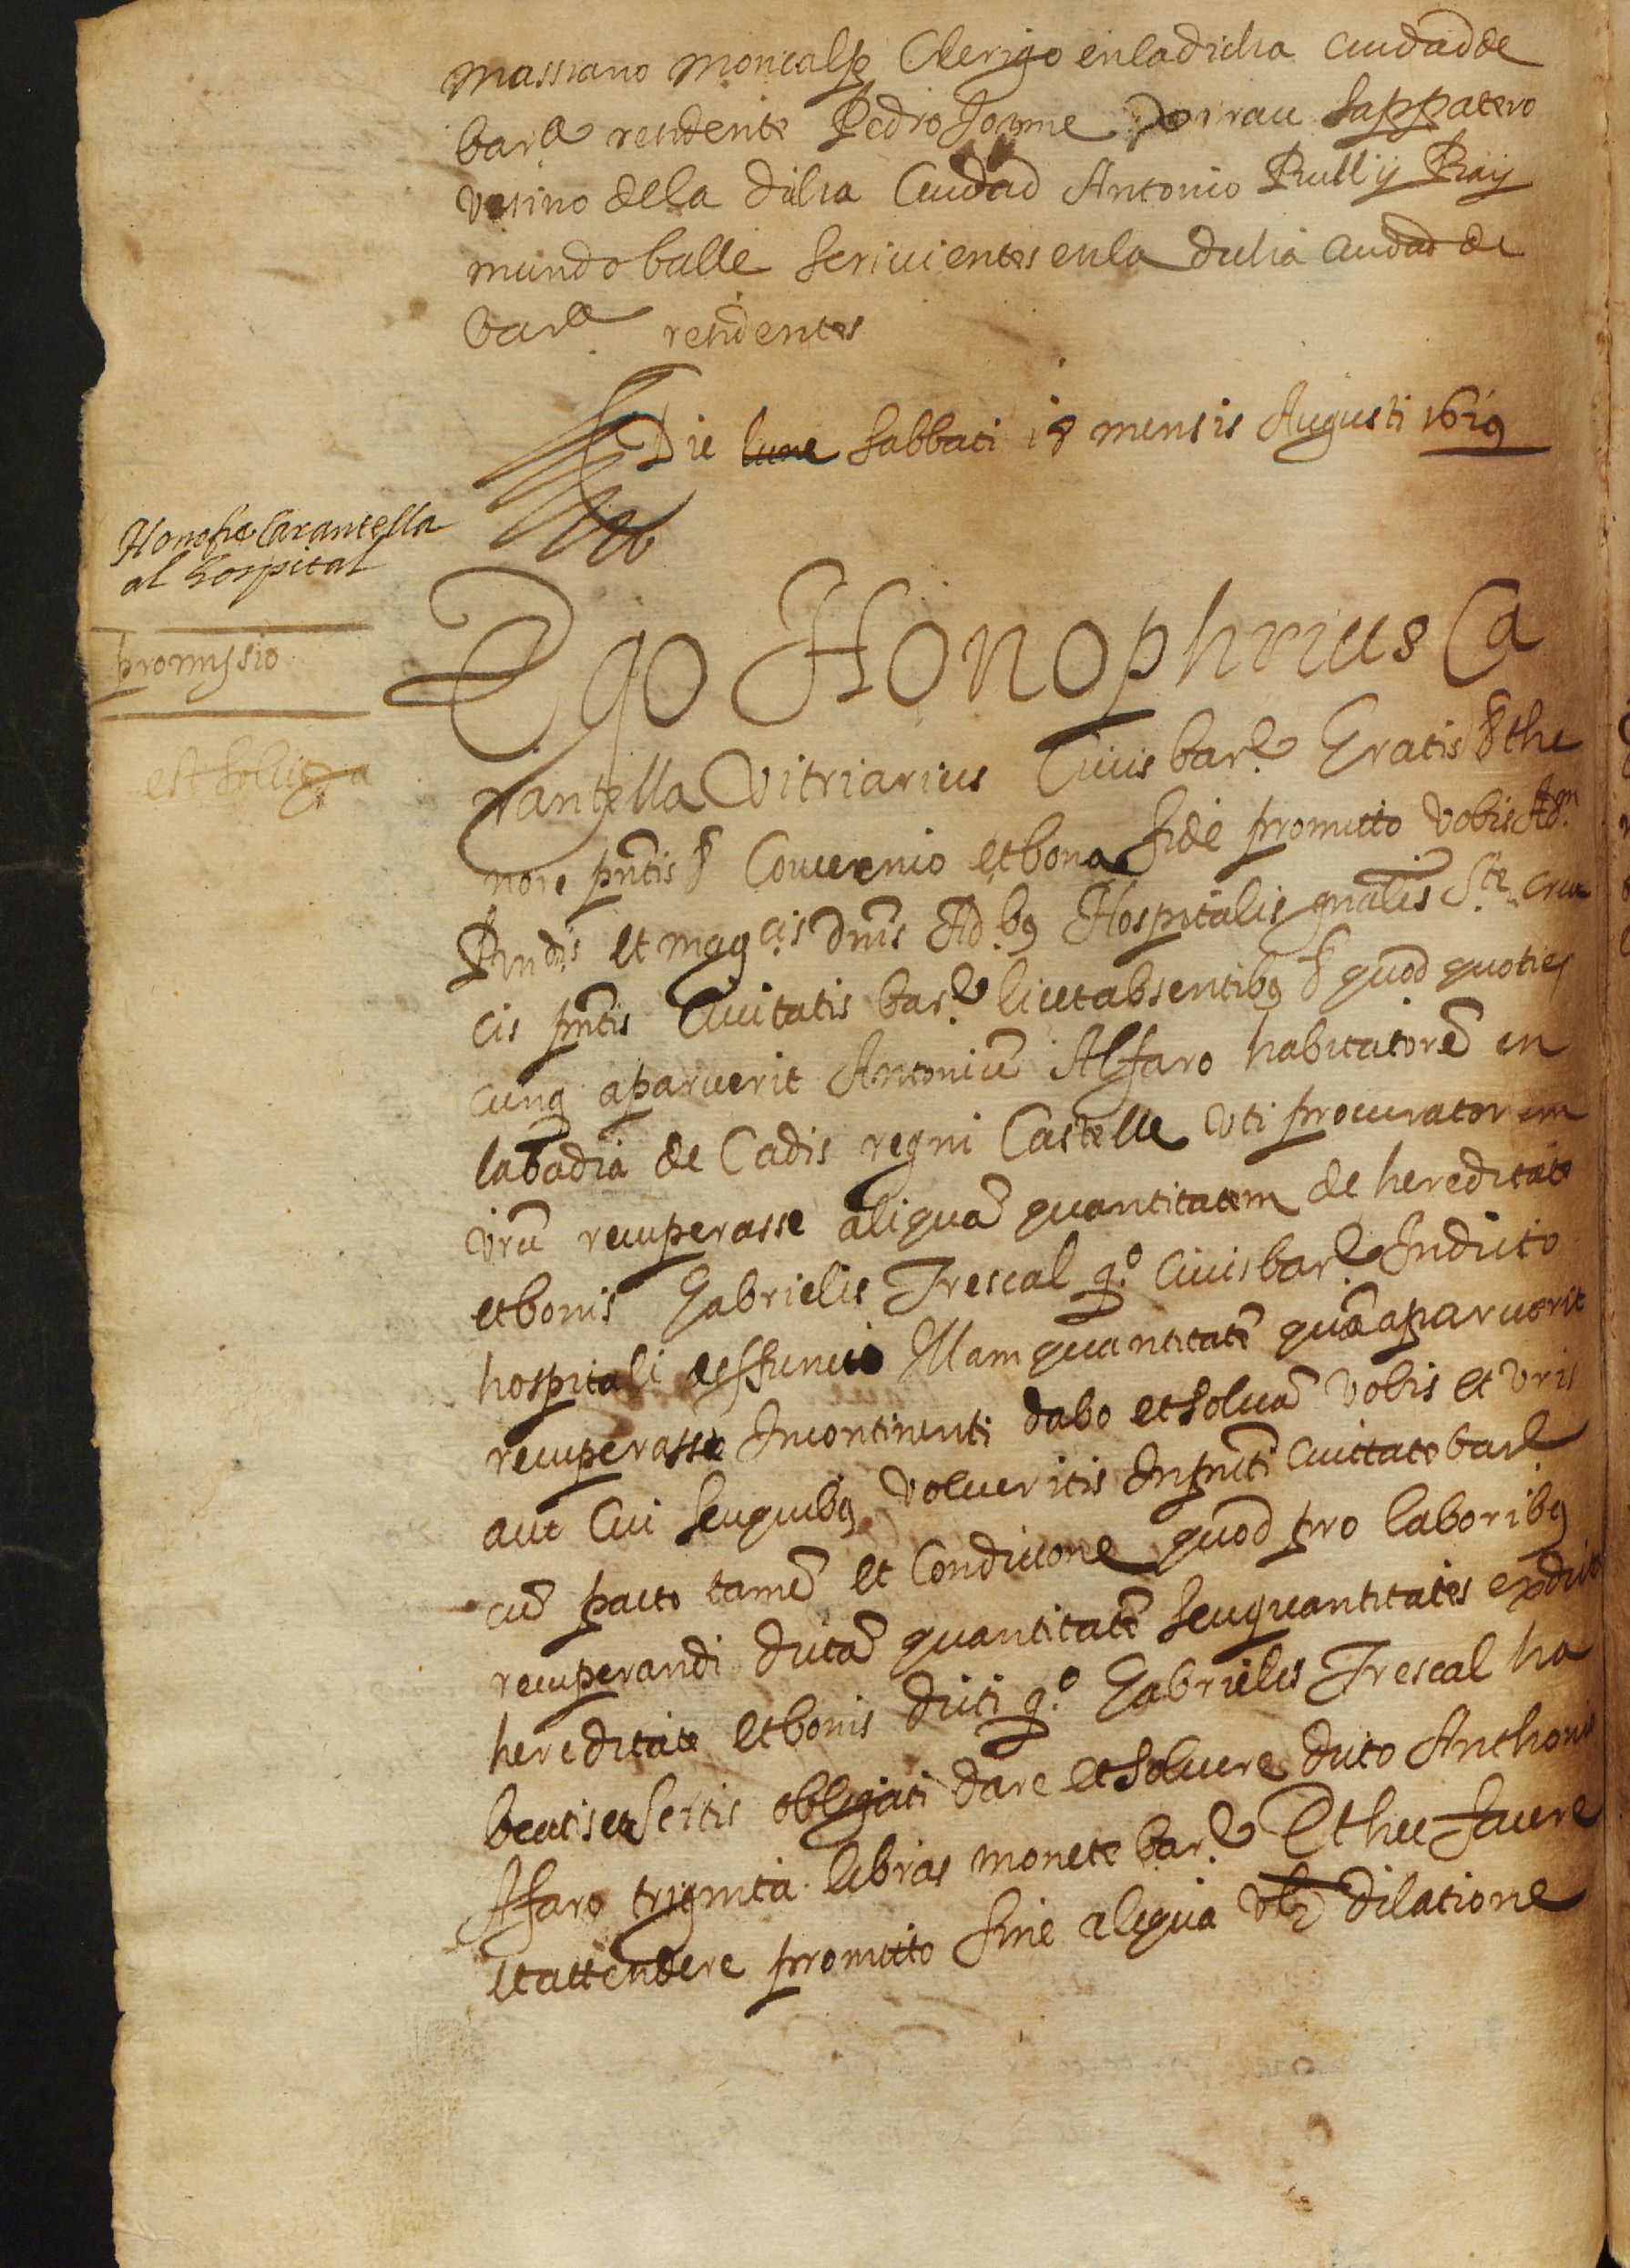 massiano moncalp Clerigo enladicha ciudad de
barª residente Pedro Joyme sappatero
vesino dela dicha Ciudad Antonio Rull ÿ Raÿ
mundo balle scrivientes enla dicha ciudad de
barª residentes
Die lune sabbati 18 mensis Augusti 1619
Honofre Carantella
al hospital
promissio
est sollig a
Ego Honophrius Ca
rantella Vitriarius Civis barᵉ Gratis & the
nore pñtis & Convenio et bona fide promitto vobis Adᵐ
Rndis et magᶜⁱˢ dnis Ad.bꝯ Hospitalis gñalis Stᵉ cru
cis pñtis Civitatis barᵉ licet absentibꝯ & quod quoties
cunq aparuerit Antoniũ Alfaro habitatorẽ in
labadia de Cadis regni Castelle uti procuratorem
vrũ recuperasse aliquã quantitatem de hereditate
et bonis Gabrielis Frescal qº Civis barᵉ In dicto
hospitali deffuncto Illam quantitatẽ quã aparuerit
recuperasse Incontinenti dabo et solvã vobis et vris
aut Cui seu quibꝯ volueritis In pñti Civitate barᵉ
cũ pacto tamẽ et Condicione quod pro laboribꝯ
recuperandi dictã quantitatẽ seu quantitates ex dict
hereditate et bonis dicti qº Gabrielis Frescal ha
beatis et sitis obligati dare et solvere dicto Anthoni
Alfaro triginta libras monete barᵉ Et hec facere
et attendere promitto sine aliqua dilatione